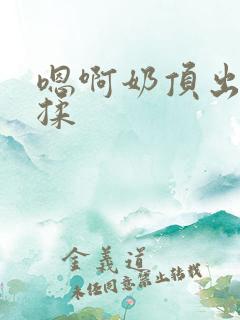 嗯啊奶頂出
揉
金義道
未经同意禁止转载